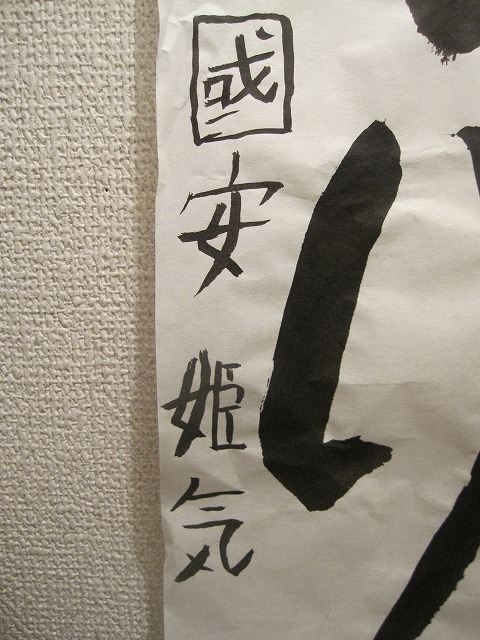 國安 姫気